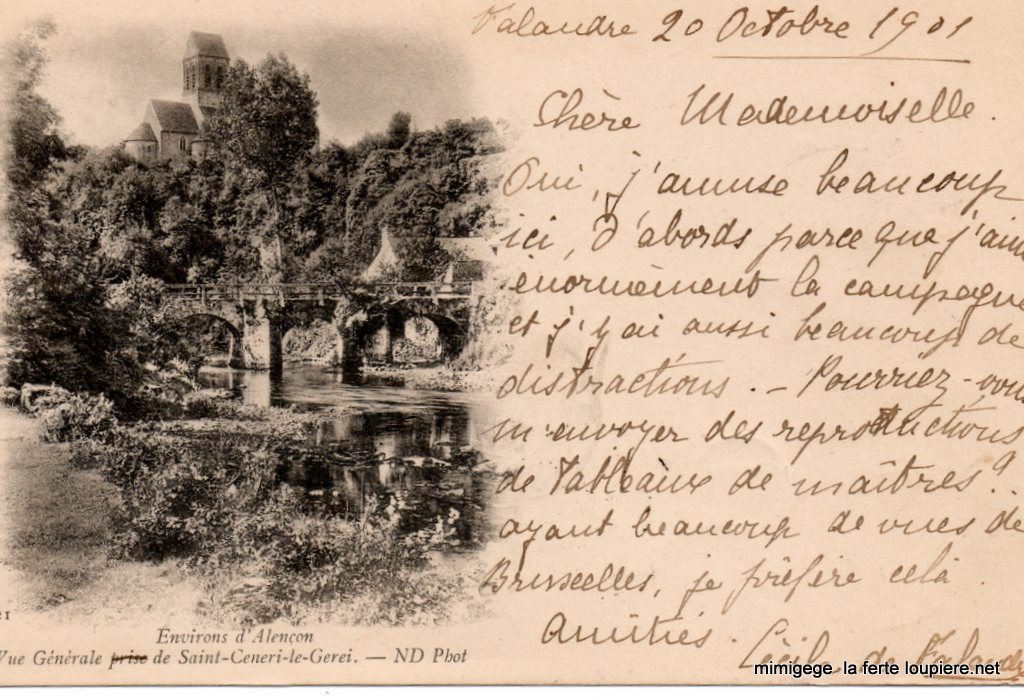 Valandre 20 Octobre 1901
Chère Mademoiselle.
Oui, j'amuse beaucoup
ici, d'abords parce que j'aim
énormément la campagne
et j'y ai aussi beaucoup de
distractions. - Pourriez-vous
m'envoyer des reproductions
de tableaux de maîtres?
ayant beaucoup de vues de
Bruxelles, je préfère celà.
Amitiés. Cécile de Valandr
21
Environs d'Alencon
Vue Générale prise de Saint-Ceneri-le-Gerei. — ND Phot
mimigege la ferte loupiere.net